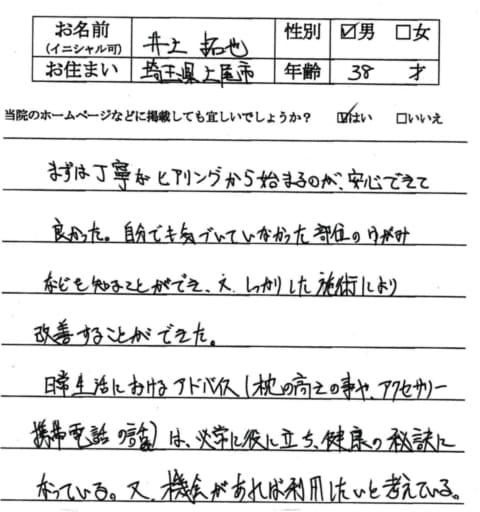 お名前 (イニシャル可) 井上 拓也 性別 ☑男 □女
お住まい 埼玉県上尾市 年齢 38 才
当院のホームページなどに掲載しても宜しいでしょうか? ☑はい □いいえ
まずは丁寧なヒアリングから始まるのが、安心できて
良かった。自分でも気づいていなかった部位のゆがみ
なども知ることができ、又、しっかりした施術により
改善することができた。
日常生活におけるアドバイス(枕の高さの事や、アクセサリー
携帯電話の話)は、非常に役に立ち、健康の秘訣に
なっている。又、機会があれば利用したいと考えている。